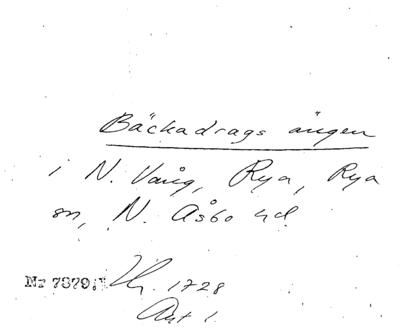 Bäckadrags ängen
i N. Vång, Rya, Rya
sn, N. Åsbo hd.
Nr 7879: 1728
Akt 1.